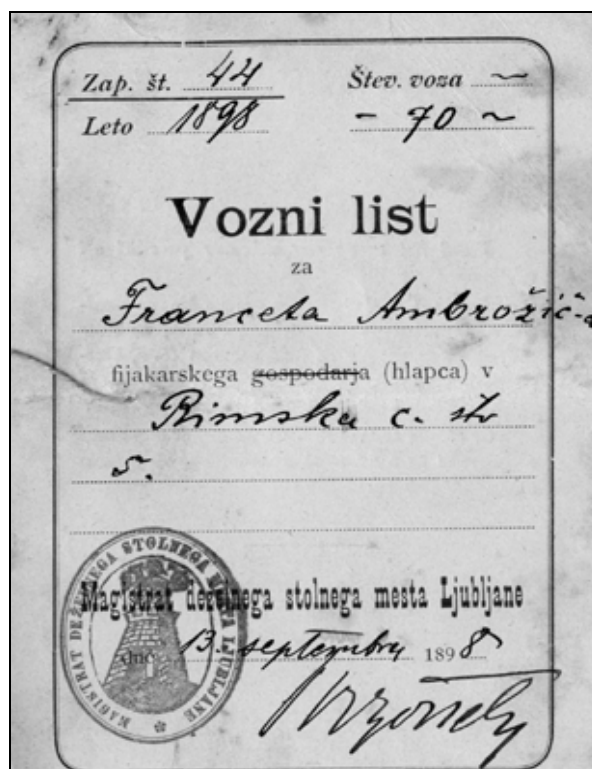 Zap. št. 44 Štev. voza ~
Leto 1898 - 70 ~
Vozni list
za
Franceta Ambrožič-a
fijakarskega gospodarja (hlapca) v
Rimska c. štv
5.
MAGISTRAT DEŽELNEGA STOLNEGA MESTA LJUBLJANE
Magistrat deželnega stolnega mesta Ljubljane
dné 13. septembra 1898